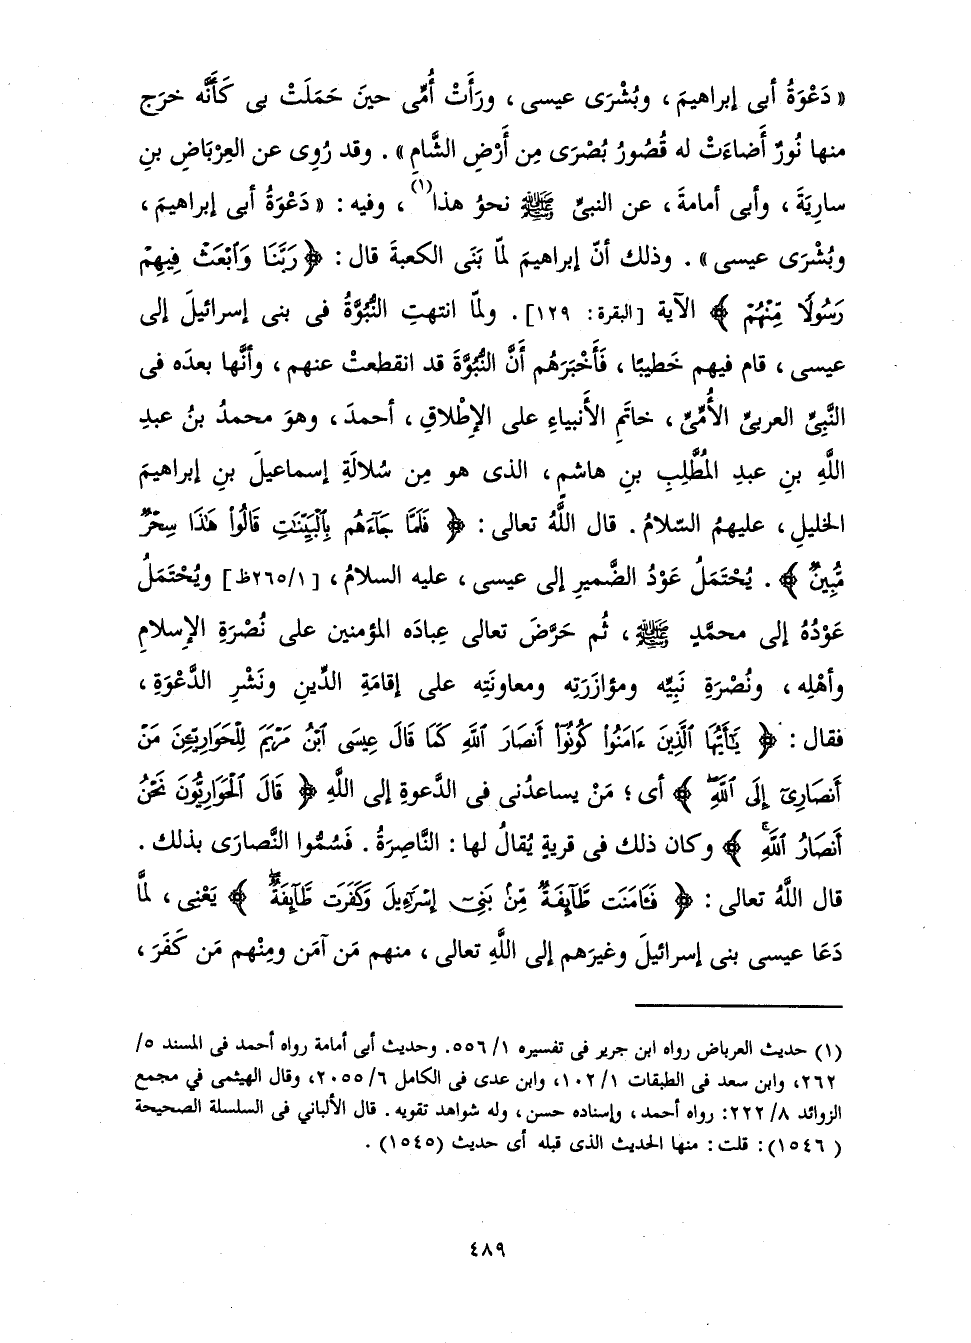 « دَعْوَةُ أبى إبراهيمَ ، وبُشْرَى عيسى ، ورَأَتْ أُمِّى حينَ حَمَلَتْ بى كَأَنَّه خرَج
منها نُورٌ أَضاءَتْ له قُصُورُ بُصْرَى مِن أَرْضِ الشَّامِ » . وقد رُوِى عن العِرْباضِ بنِ
سارِيَةَ ، وأبى أمامةَ ، عن النبىِّ ﷺ نحوُ هذا (١) ، وفيه : « دَعْوَةُ أبى إبراهيمَ ،
وبُشْرَى عيسى » . وذلك أنّ إبراهيمَ لمّا بَنَى الكعبةَ قال : ﴿ رَبَّنَا وَٱبْعَثْ فِيهِمْ
رَسُولًا مِّنْهُمْ ﴾ الآية [البقرة: ١٢٩] . ولمّا انتهتِ النُّبُوَّةُ فى بنى إسرائيلَ إلى
عيسى ، قام فيهم خَطيبًا ، فَأَخْبَرَهُم أَنَّ النُّبُوَّةَ قد انقطعتْ عنهم ، وأنَّها بعدَه فى
النَّبِىِّ العربىِّ الأُمِّىِّ ، خاتَمِ الأَنبياءِ على الإِطْلاقِ ، أحمدَ ، وهوَ محمدُ بنُ عبدِ
اللَّهِ بنِ عبدِ المُطَّلِبِ بنِ هاشمٍ ، الذى هو مِن سُلالَةِ إسماعيلَ بنِ إبراهيمَ
الخليلِ ، عليهمُ السّلامُ . قال اللَّهُ تعالى : ﴿ فَلَمَّا جَآءَهُم بِٱلْبَيِّنَٰتِ قَالُوا۟ هَٰذَا سِحْرٌ
مُّبِينٌ ﴾ . يُحْتَمَلُ عَوْدُ الضَّميرِ إلى عيسى ، عليه السلامُ ، [٢٦٥/١ظ] ويُحْتَمَلُ
عَوْدُهُ إلى محمَّدٍ ﷺ ، ثُم حَرَّضَ تعالى عِبادَه المؤمنين على نُصْرَةِ الإِسلامِ
وأهْلِه ، ونُصْرَةِ نَبِيِّه ومؤازَرَتِه ومعاونَتِه على إقامَةِ الدِّينِ ونَشْرِ الدَّعْوَةِ ،
فقال : ﴿ يَٰٓأَيُّهَا ٱلَّذِينَ ءَامَنُوا۟ كُونُوٓا۟ أَنصَارَ ٱللَّهِ كَمَا قَالَ عِيسَى ٱبْنُ مَرْيَمَ لِلْحَوَارِيِّـۧنَ مَنْ
أَنصَارِىٓ إِلَى ٱللَّهِ ﴾ أى ؛ مَنْ يساعدُنى فى الدَّعوةِ إلى اللَّهِ ﴿ قَالَ ٱلْحَوَارِيُّونَ نَحْنُ
أَنصَارُ ٱللَّهِ ﴾ وكان ذلك فى قريةٍ يُقالُ لها : النَّاصِرَةُ . فَسُمُّوا النَّصارَى بذلك .
قال اللَّهُ تعالى : ﴿ فَـَٔامَنَت طَّآئِفَةٌ مِّنۢ بَنِىٓ إِسْرَٰٓءِيلَ وَكَفَرَت طَّآئِفَةٌ ﴾ يَعْنِى ، لمَّا
دَعَا عيسى بنى إسرائيلَ وغيرَهم إلى اللَّهِ تعالى ، منهم مَن آمَن ومِنْهم مَن كَفَرَ ،
(١) حديث العرباض رواه ابن جرير فى تفسيره ١/ ٥٥٦. وحديث أبى أمامة رواه أحمد فى المسند ٥/
٢٦٢، وابن سعد فى الطبقات ١/ ١٠٢، وابن عدى فى الكامل ٦/ ٢٠٥٥، وقال الهيثمى في مجمع
الزوائد ٨/ ٢٢٢: رواه أحمد ، وإسناده حسن ، وله شواهد تقويه . قال الألباني فى السلسلة الصحيحة
( ١٥٤٦): قلت : منها الحديث الذى قبله أى حديث (١٥٤٥) .
٤٨٩